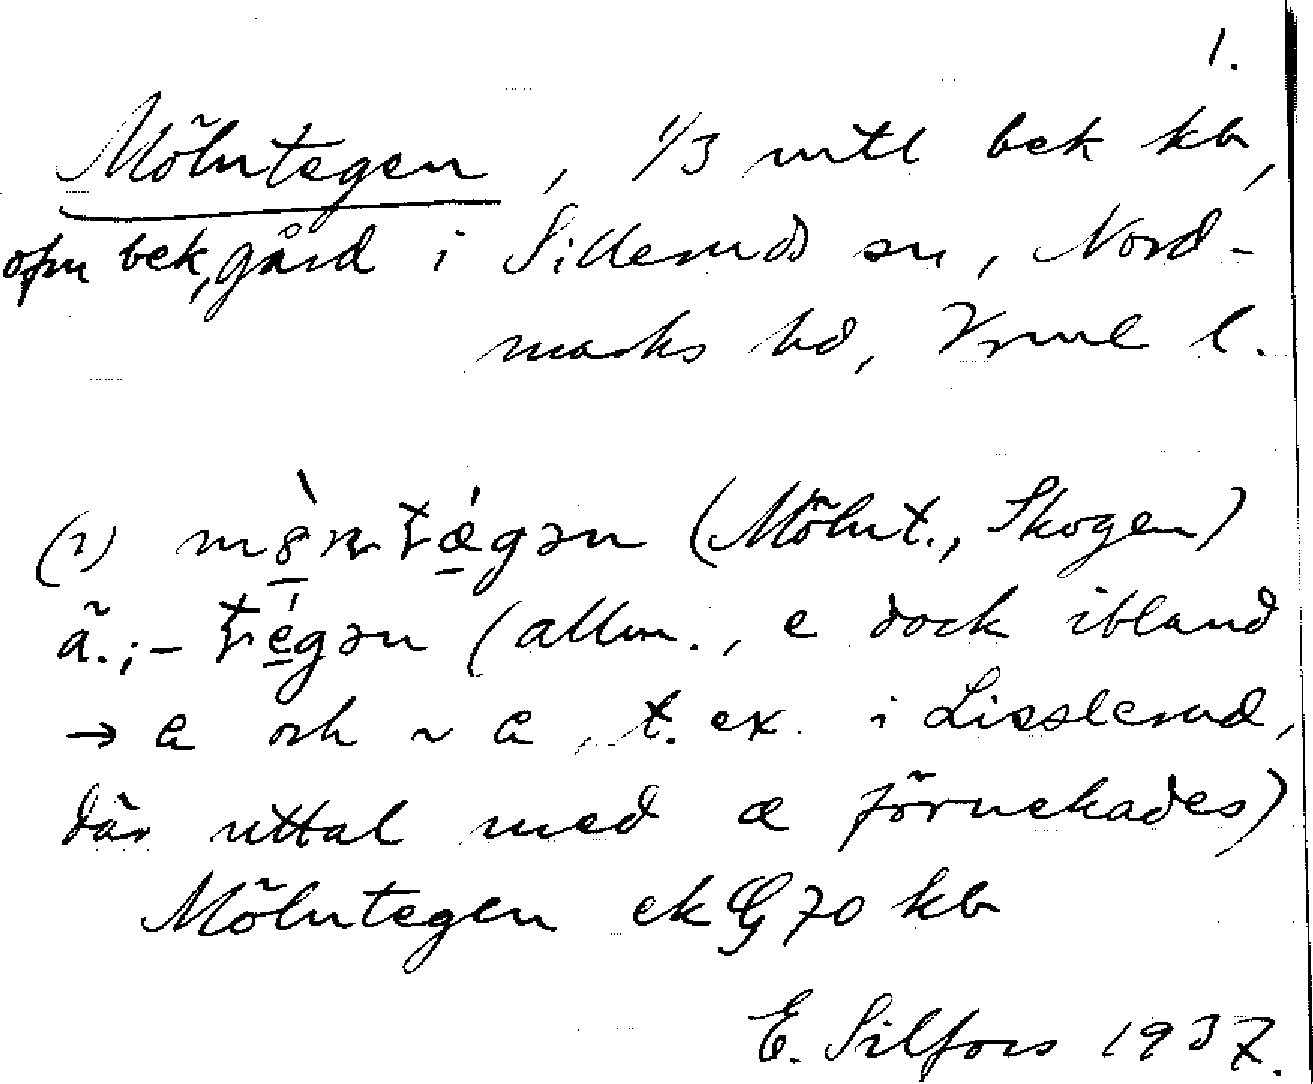 1.
Mölntegen, 1/3 mtl bek kb,
ofm bek, gård i Silleruds sn, Nord-
marks hd, Vrml l.
(1) mö̀ntǽgən (Mölnt., Skogen)
ä.; - tégən (allm., e dock ibland
→ a och ~ a, t. ex. i Lisslerud,
där uttal med æ förnekades)
Mölntegen ek G 70 kb
E. Silfors 1937.